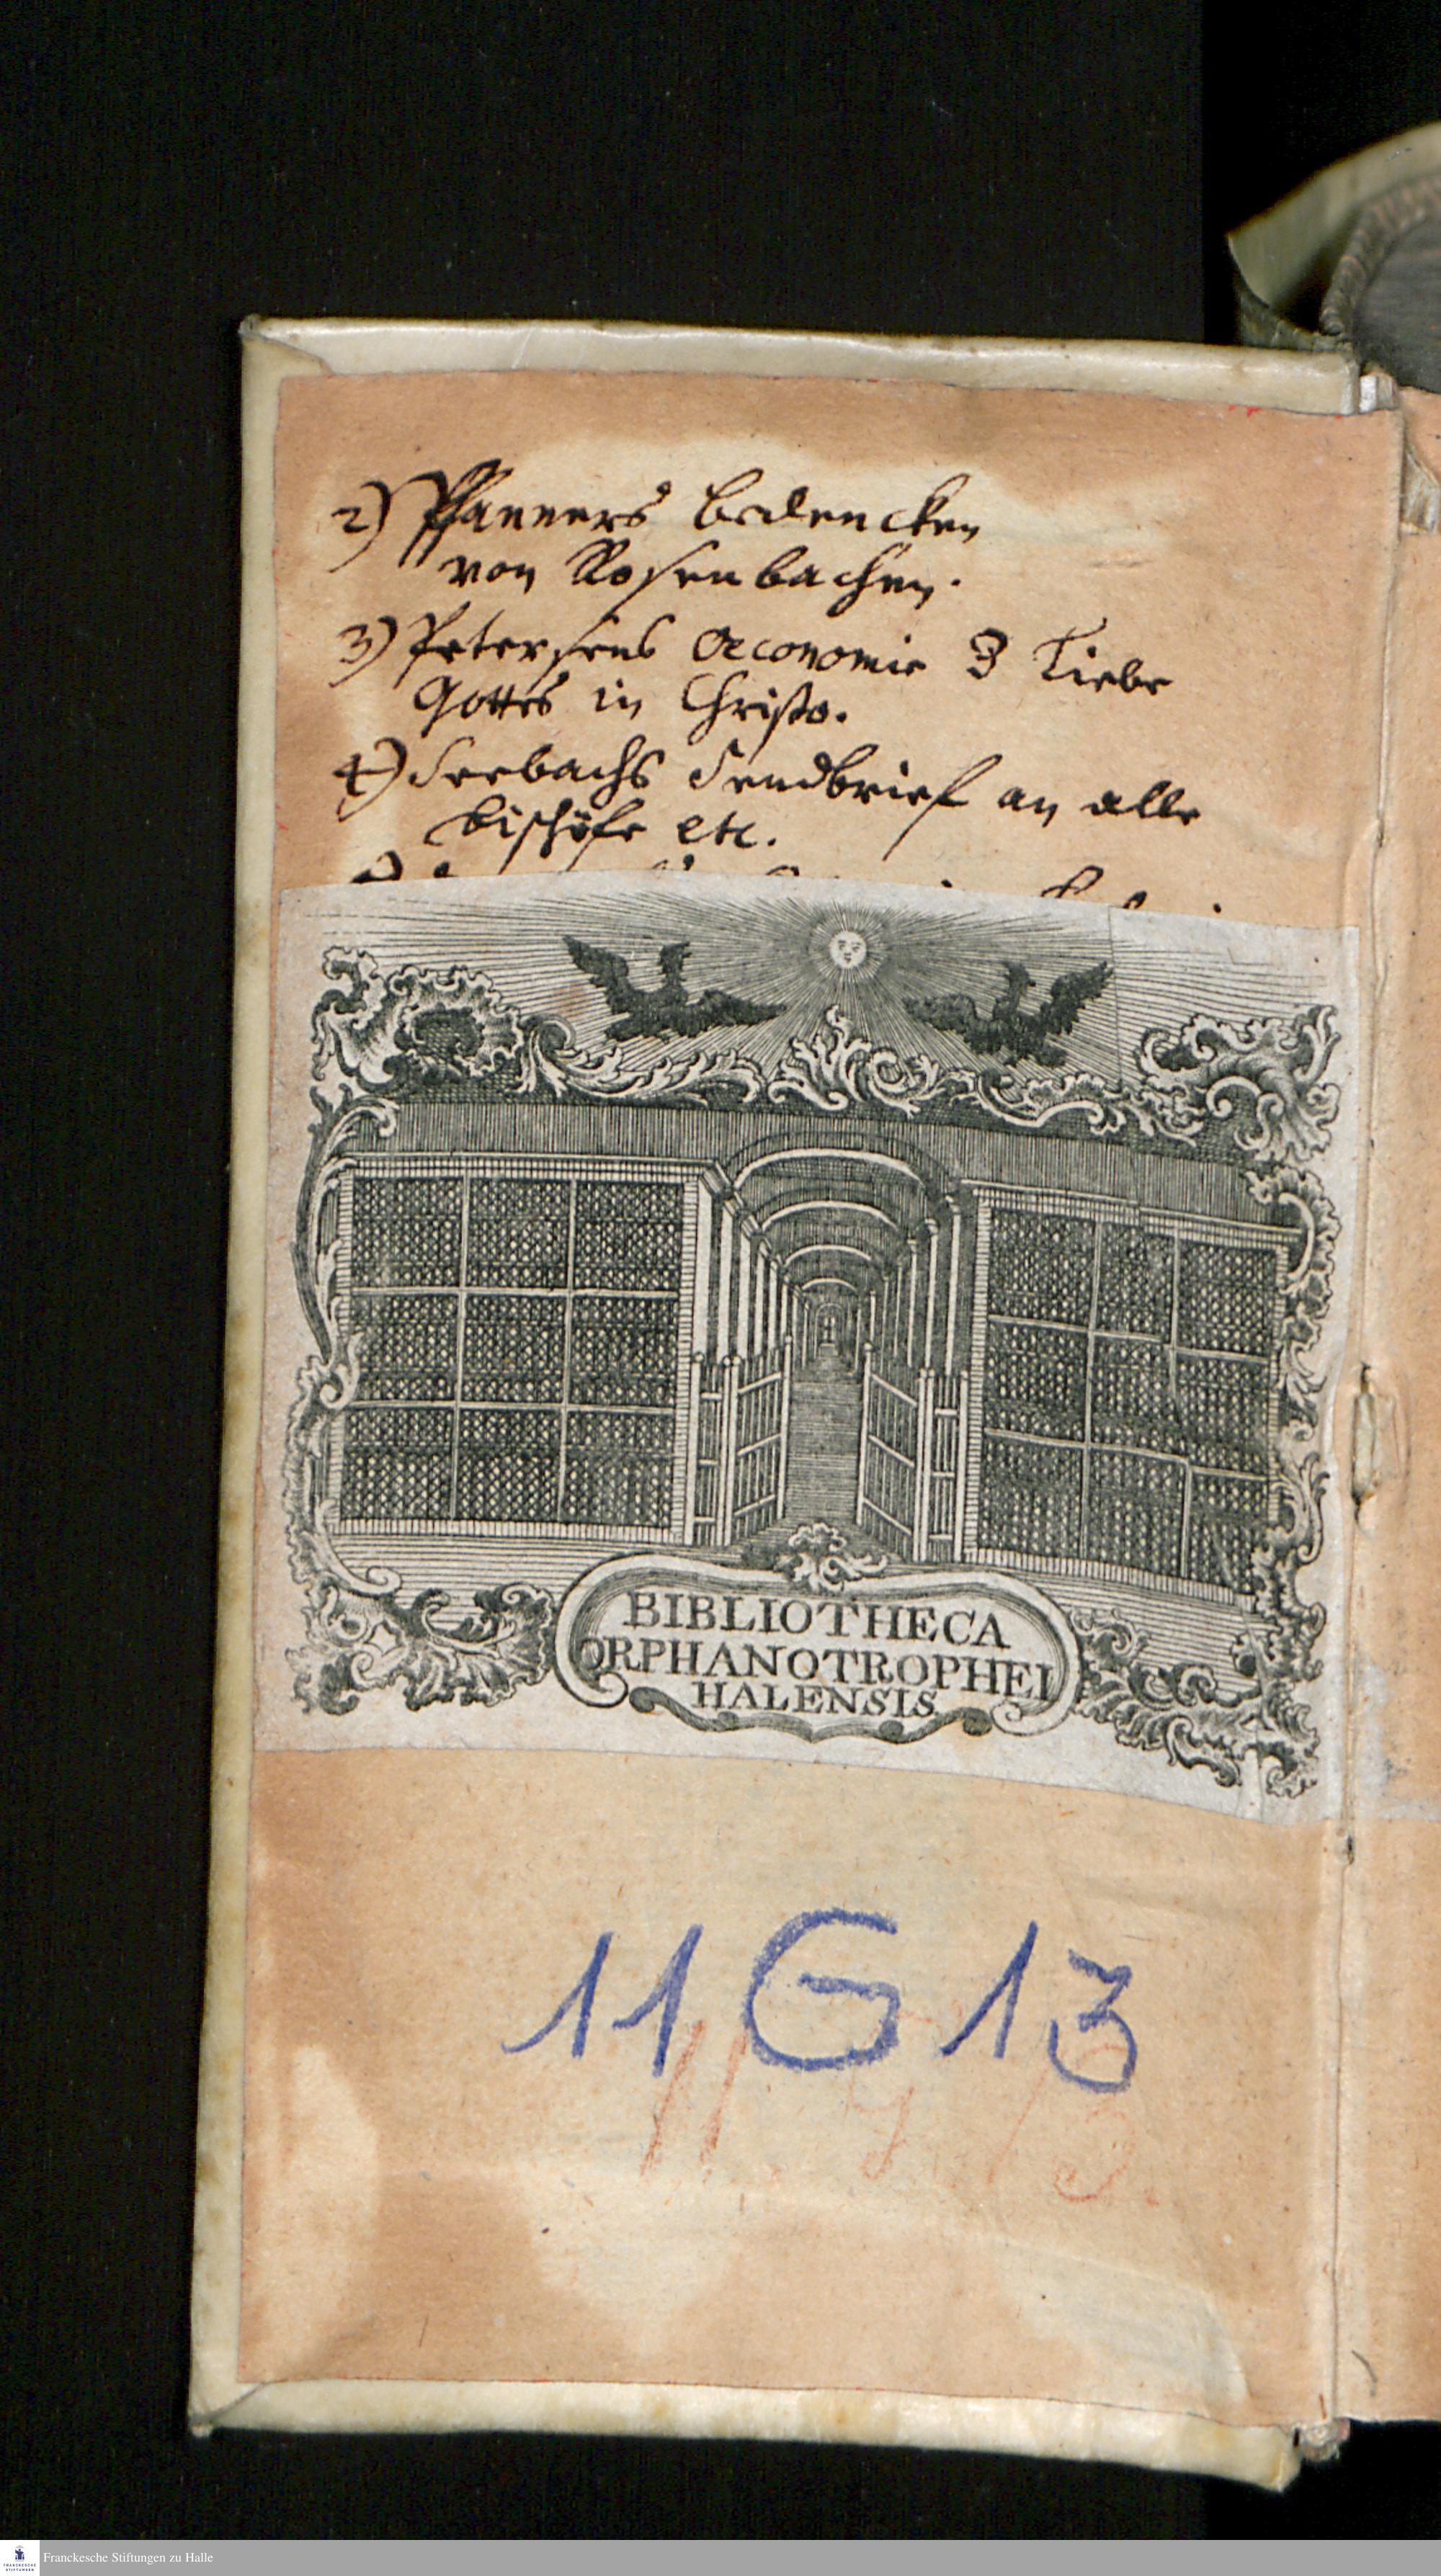 2) Pfanners bedencken
von Rosenbachen.
3) Petersens Oeconomie d Liebe
Gottes in Christo.
4) Seebachs Sendbrief an alle
bischöfe etc.
BIBLIOTHECA
ORPHANOTROPHEI
HALENSIS
11 G 13
Franckesche Stiftungen zu Halle